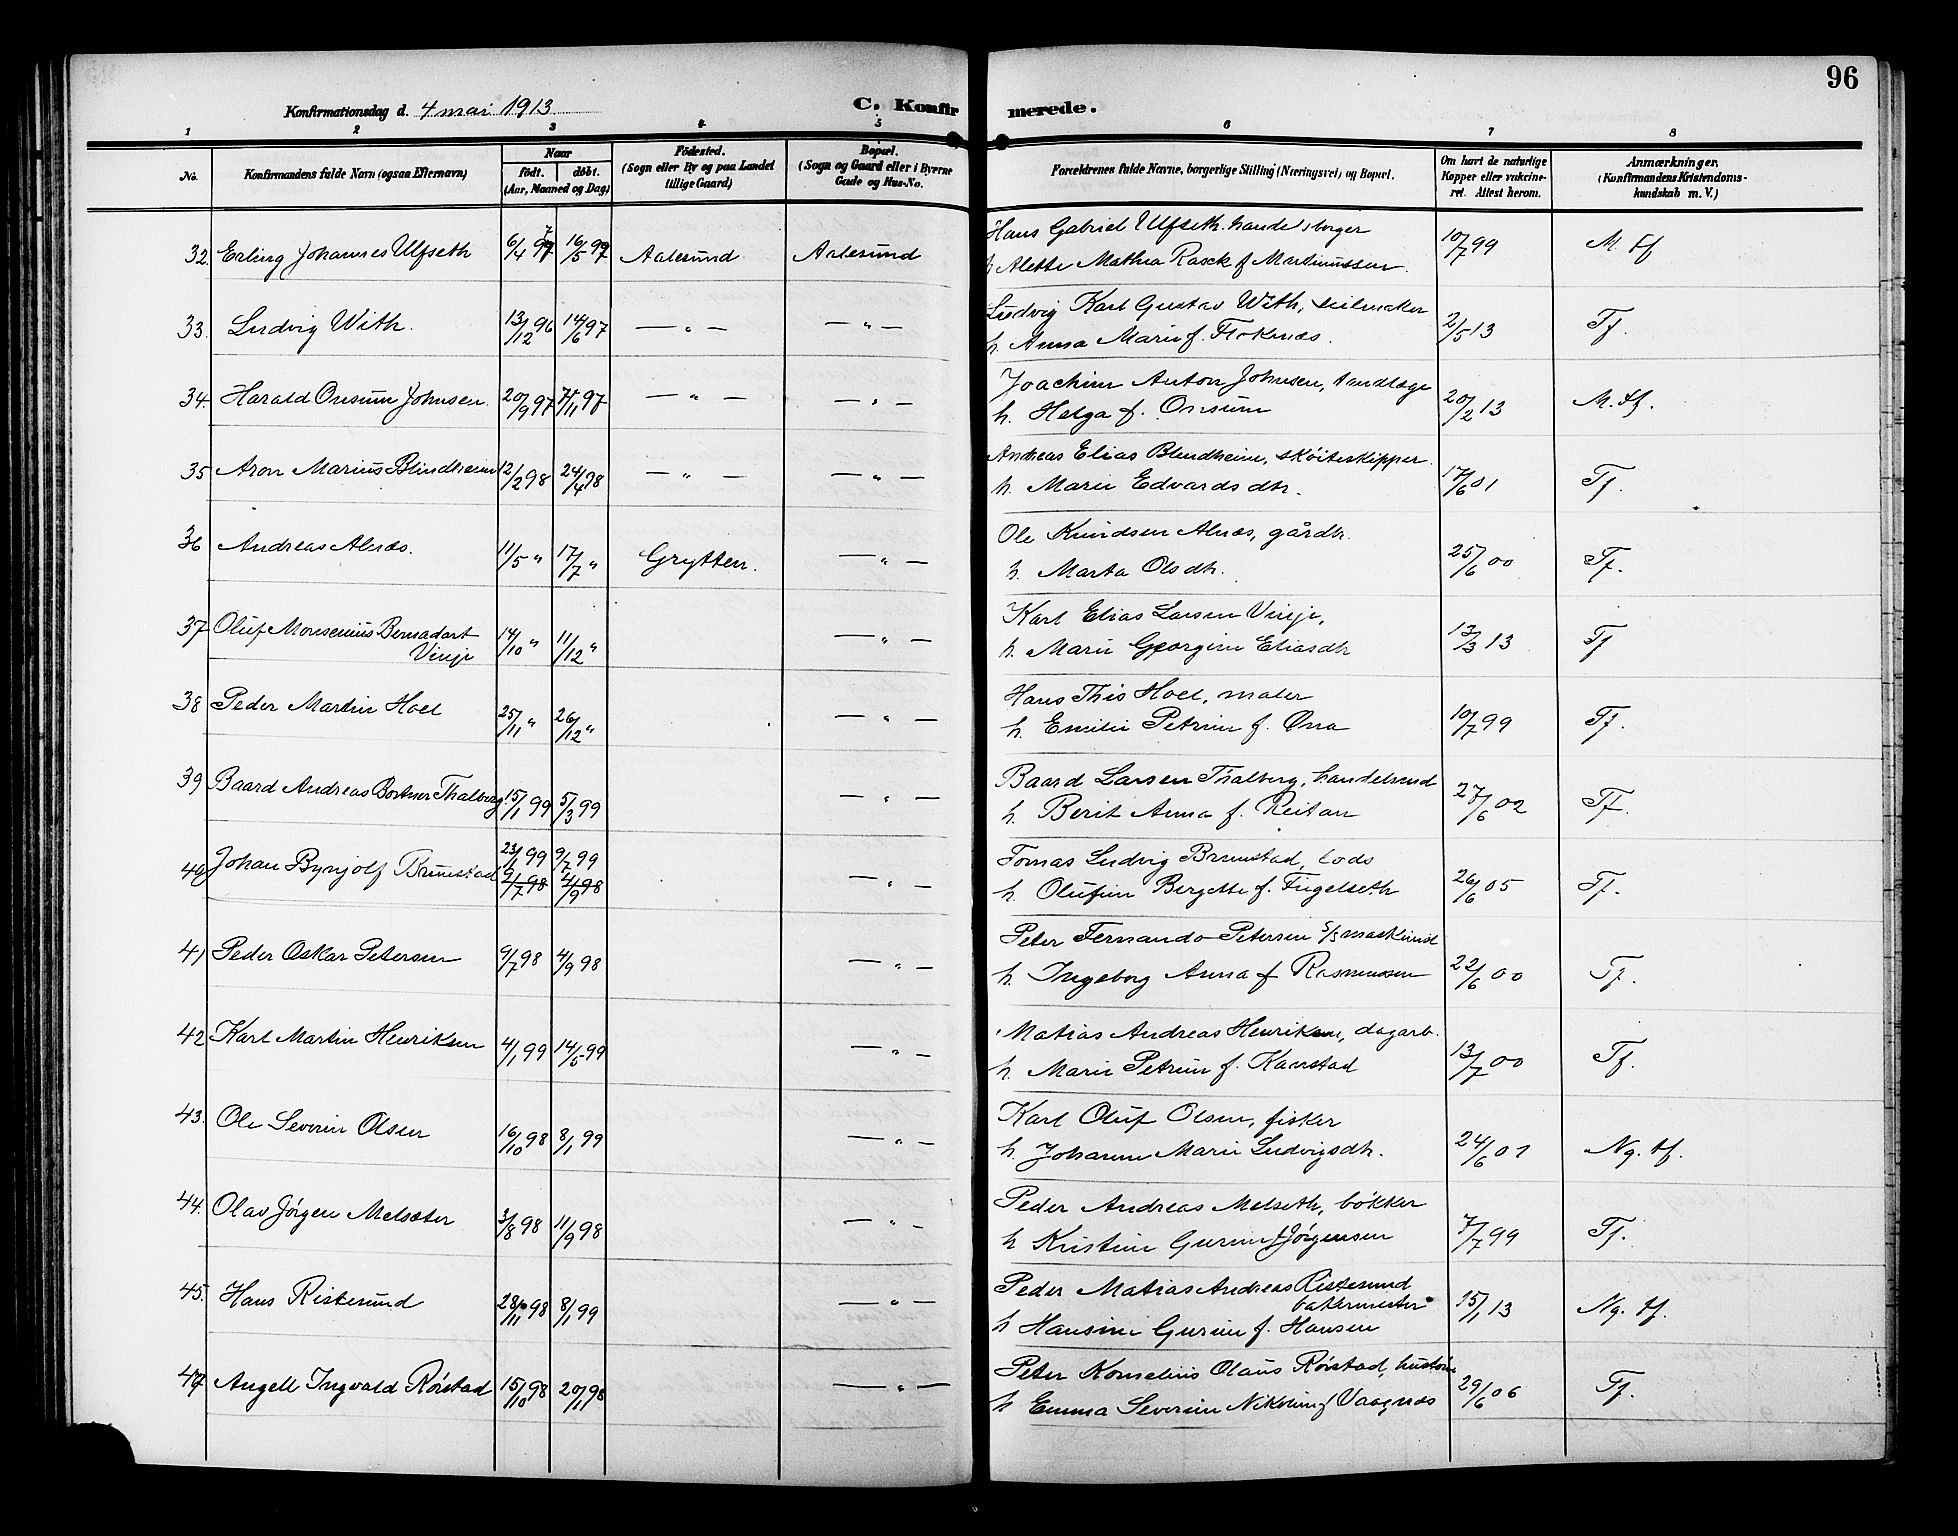 96
Konfirmationsdag d. 4 mai 1913
C. Konfirmerede.
1 2 3 4 5 6 7 8
No.
Konfirmandens fulde Navn (ogsaa Efternavn)
Naar
födt. döbt.
(Aar, Maaned og Dag)
Födested.
(Sogn eller By og paa Landet
tillige Gaard)
Bopæl.
(Sogn og Gaard eller i Byerne
Gade og Hus-No.
Forældrenes fulde Navne, borgerlige Stilling (Næringsvei) og Bopæl.
Om havt de naturlige
Kopper eller vakcine-
ret. Attest herom.
Anmærkninger.
(Konfirmandens Kristendoms-
kundskab m. V.)
Hans Gabriel Ulfseth handelsborger
32. Erling Johannes Ulfseth 6/4 97 16/5 97 Aalesund Aalesund 10/7 99 M. tf
h. Alette Mathea Rasck f Martinussen.
Ludvig Karl Gustav With, seilmaker
33. Ludvig With. 13/12 96 14/6 97 — " — — " — 2/5 13 Tf.
h. Anna Marie f. Flokenæs.
Joachim Anton Johnsen, tandlæge
34. Harald Onsum Johnsen. 20/9 97 7/11 97 — " — — " — 20/2 13 M. tf.
h. Helga f. Onsum
Andreas Elias Blindheim, skøiteskipper.
35 Aron Marius Blindheim 12/2 98 24/4 98 — " — — " — 17/6 01 Tf.
h. Marie Edvardsdtr.
Ole Knudsen Alnæs, gårdbr.
36 Andreas Alnæs. 11/5 " 17/7 " Grytten. — " — 25/6 00 Tf.
h. Marta Olsdtr.
Karl Elias Larsen Vinje,
37 Oluf Monsenius Bernadart
Vinje 14/10 " 11/12 " — " — 13/3 13 Tf
h. Marie Georgine Eliasdtr
Hans This Hoel, maler
38 Peder Martin Hoel 25/11 " 26/12 " — " — 10/7 99 Tf.
h. Emilie Petrine f. Ørra
Baard Larsen Thalberg, handelsmd
39 Baard Andreas Bortner Thalberg 15/1 99 5/3 99 — " — 27/6 02 Tf.
h. Berit Anna f. Reitan
23/1 99 9/7 99
Tomas Ludvig Brunstad, lods
40 Johan Bynjolf Brunstad 9/7 98 4/9 98 — " — 26/6 05 Tf.
h. Olufine Bergette f. Fugelseth
Peter Fernando Petersen S/S maskinist
41 Peder Oskar Petersen 9/7 98 4/9 98 — " — 22/6 00 Tf.
h. Ingeborg Anna f Rasmussen
Matias Andreas Henriksen, dagarb.
42 Karl Martin Henriksen 4/1 99 14/5 99 — " — 13/7 00 Tf.
h. Marie Petrine f. Kanestad
Karl Oluf Olsen, fisker
43. Ole Severin Olsen 16/10 98 8/1 99 — " — 24/6 01 Ng. tf.
h. Johanne Marie Ludvigsdtr.
Peder Andreas Melseth, bøkker
44. Olav Jörgen Melsæter 3/8 98 11/9 98 — " — 7/7 99 Tf.
h Kristine Gurine f Jørgensen
Peder Matias Andreas Ristesund
bakermester
45. Hans Ristesund 28/11 98 8/1 99 — " — 15/1 13 Ng. tf.
h Hansine Gurine f. Hansen
Peter Kornelius Olaus Røistad, hustöm
47 Angell Ingvald Røistad 15/10 98 20/11 98 — " — 29/6 06 Tf.
h Emma Severine Nikoline f Vaagnæs